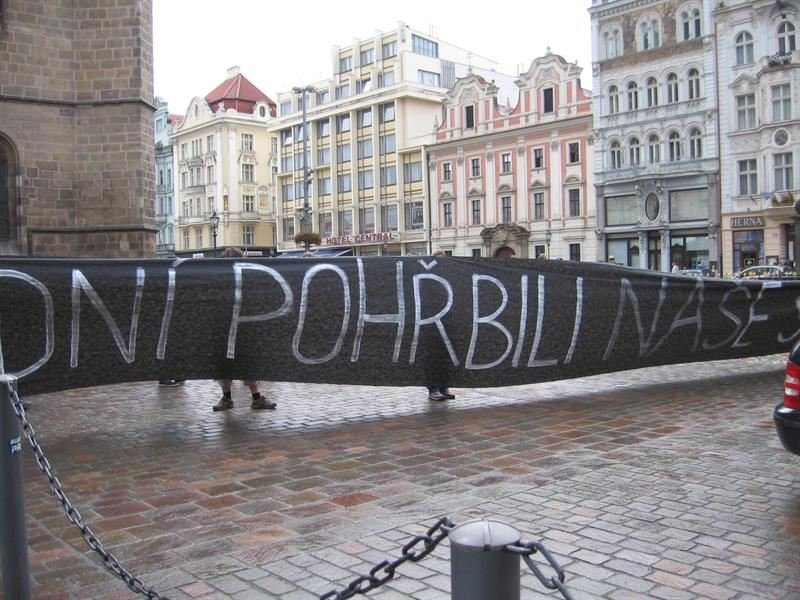 HOTEL CENTRAL
HERNA
DNÍ POHŘBILI NAŠE